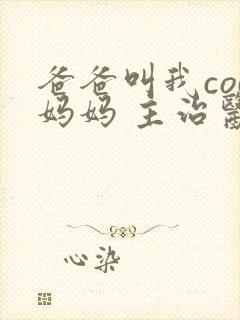 爸爸叫我co
妈妈 主治
心染